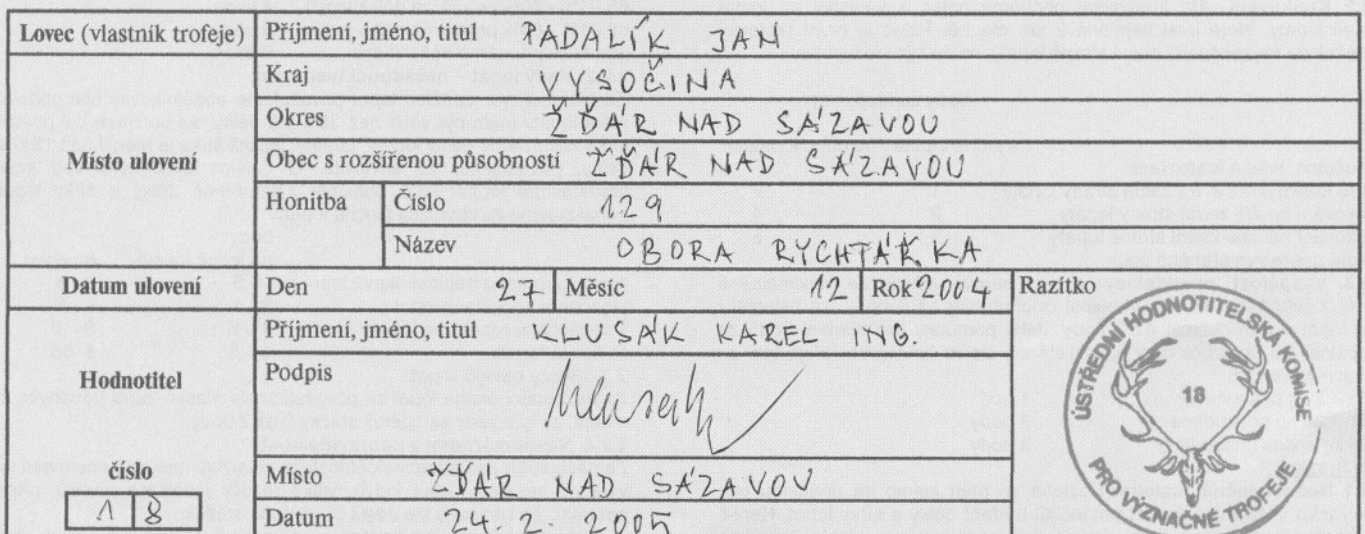 Lovec (vlastník trofeje) Příjmení, jméno, titul PADALÍK JAN
Kraj VYSOČINA
Okres ŽĎÁR NAD SÁZAVOU
Místo ulovení Obec s rozšířenou působností ŽĎÁR NAD SÁZAVOU
Honitba Číslo 129
Název OBORA RYCHTÁŘKA
Datum ulovení Den 27 Měsíc 12 Rok 2004 Razítko
Příjmení, jméno, titul KLUSÁK KAREL ING.
Hodnotitel Podpis
číslo Místo ŽĎAR NAD SÁZAVOU
18 Datum 24. 2. 2005
ÚSTŘEDNÍ HODNOTITELSKÁ KOMISE
18
PRO VÝZNAČNÉ TROFEJE